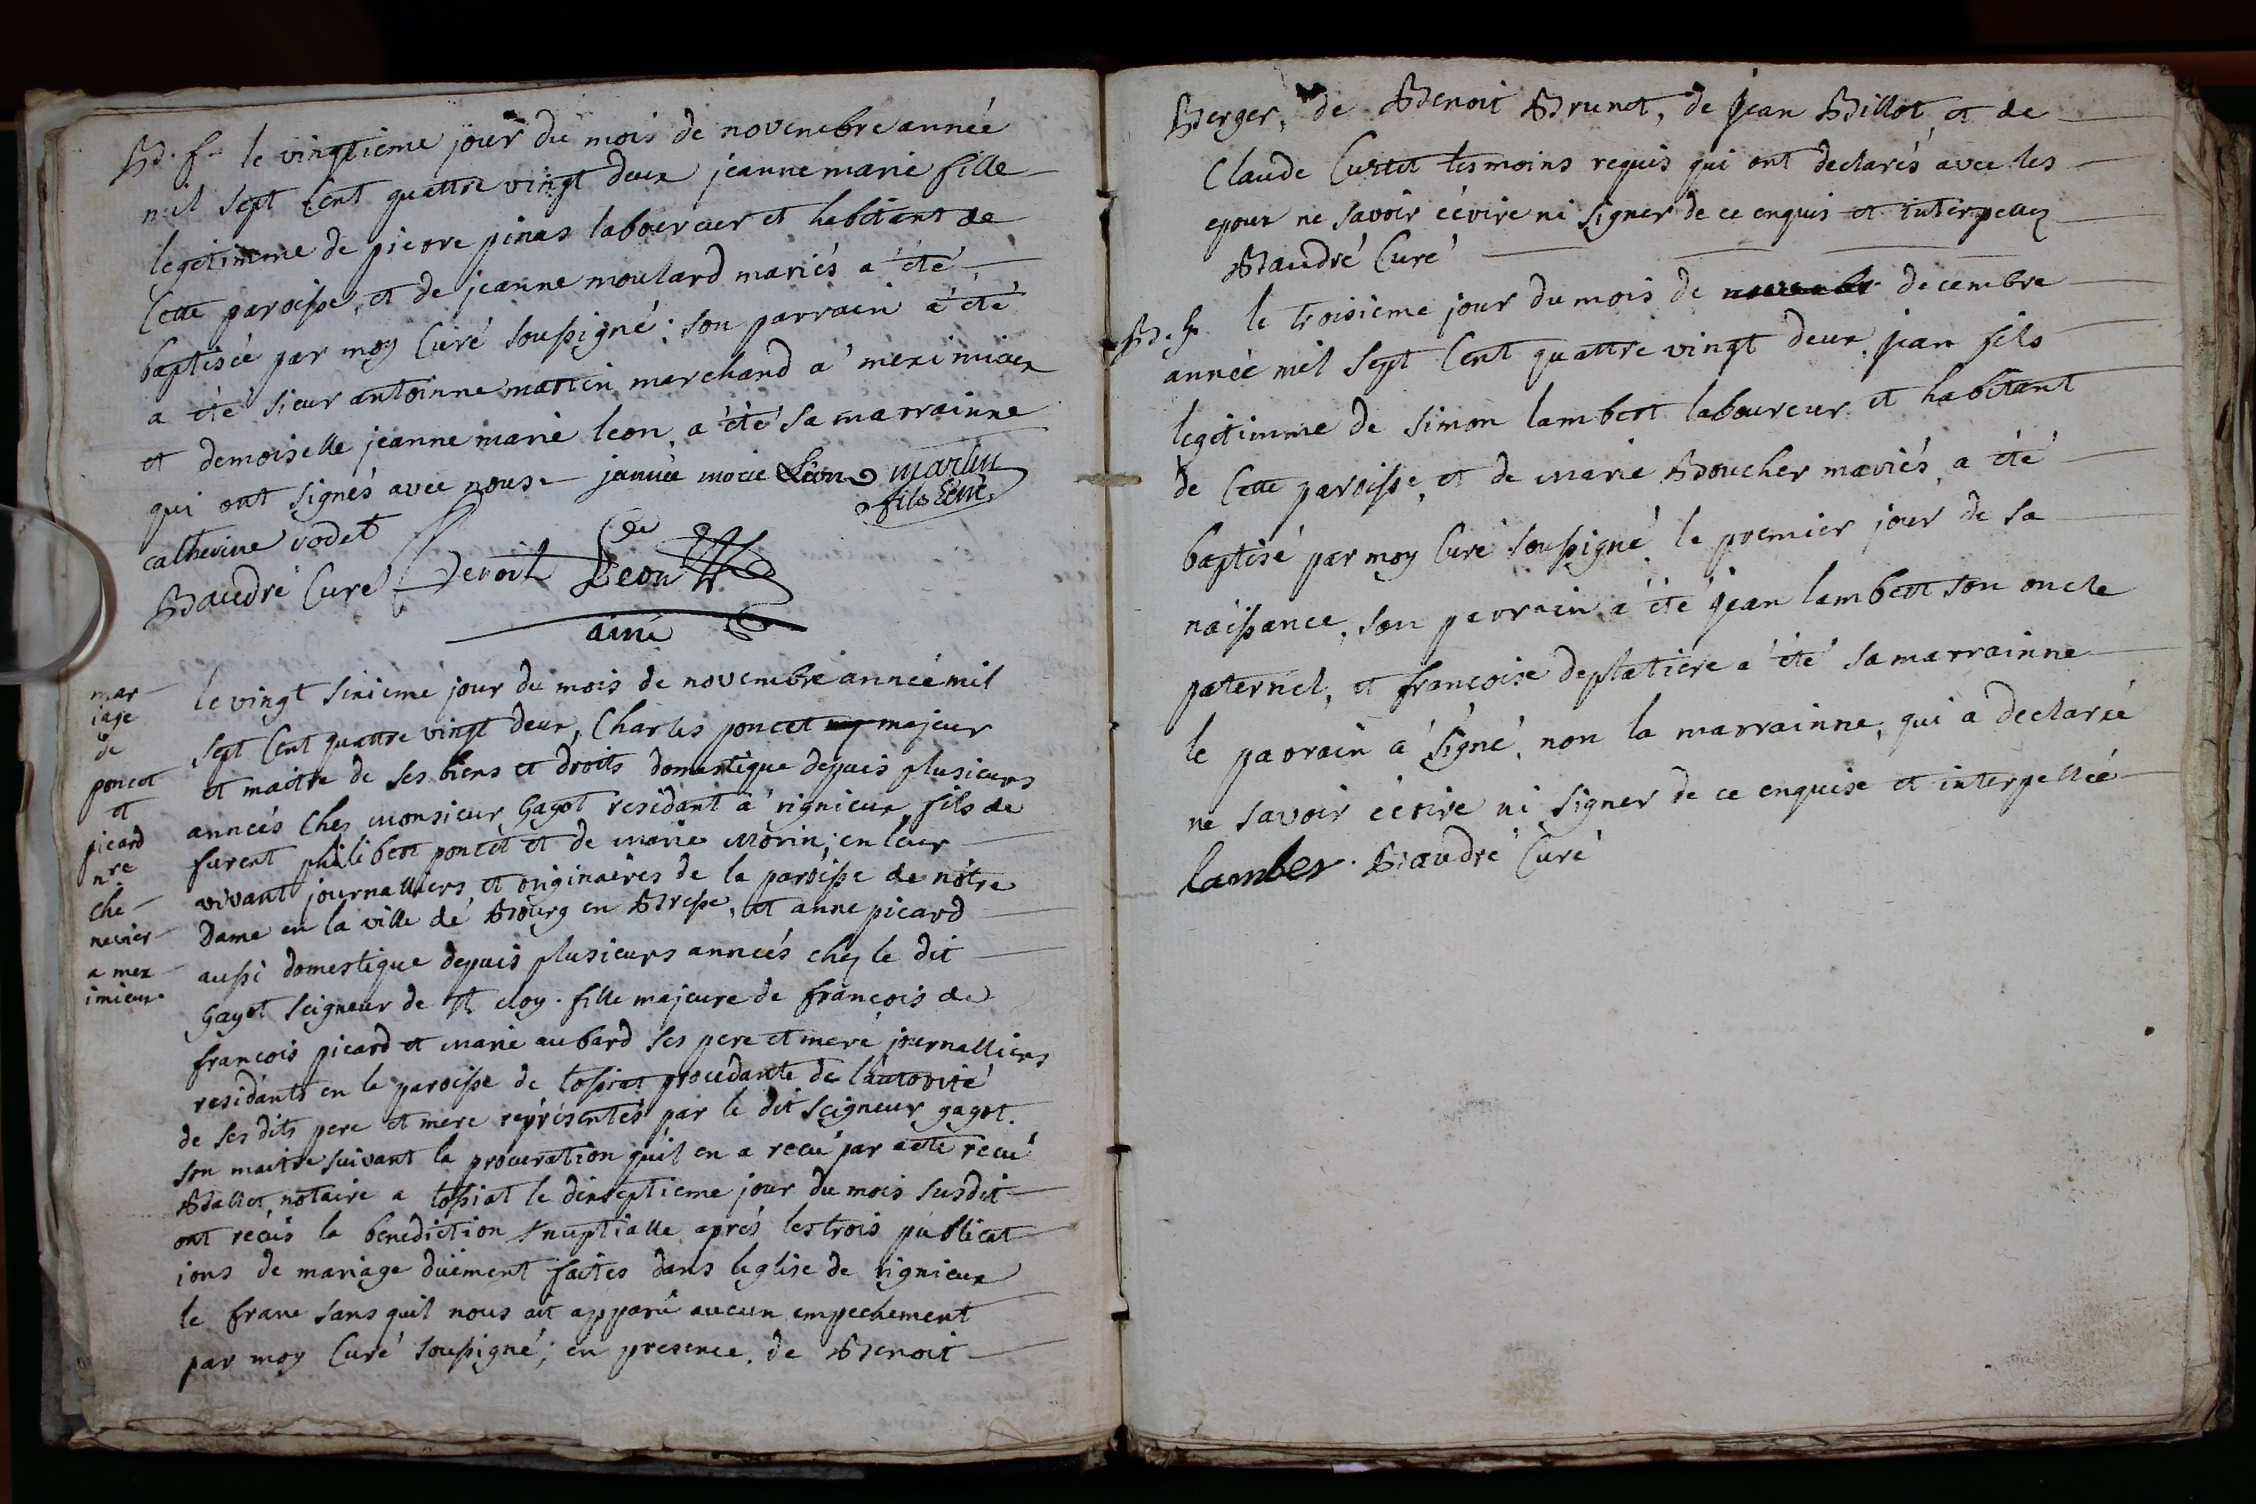 B. f. le vingtieme jour du mois de novembre année
mil sept cent quattre vingt deux jeanne marie fille
legetimme de pierre pinas laboureur et habitant de
cette paroisse, et de jeanne moulard mariés a été
baptisée par moy curé soussigné; son parrain a été
a été sieur antoinne martin marchand a meximieux
et demoiselle jeanne marie leon a été sa marrainne
qui ont signés avec nous. jannie marie Léon martin
fils
catherine vodet
Baudré curé Benoit Leon
ainé
mar
iage
de
poncet
et
picard
nre
che
nevier
a mex
imieux.
le vingt sixieme jour du mois de novembre année mil
sept cent quattre vingt deux, Charles poncet majeur
et maitre de ses biens et droits domestique depuis plusieurs
années chez monsieur gayot residant a rignieux fils de
furent philibert poncet et de marie morin; en leur
vivant journalliers et originaires de la paroisse de nôtre
Dame en la ville de Bourg en Bresse, et anne picard
aussi domestique depuis plusieurs années chez le dit
gayot seigneur de st eloy. fille majeure de françois de
francois picard et marie aubard ses pere et mere journalliers
residants en la paroisse de tossiat procedante de l'autorité
de ses dits pere et mere représentés par le dit seigneur gayot.
son maitre suivant la procuration qu'il en a recu par acte recu
Ballet notaire a tossiat le dixseptieme jour du mois susdit
ont recus la benediction nuptialle après les trois publicat
ions de mariage duëment faites dans leglise de rignieux
le franc sans quil nous ait apparu aucun empechement
par moy curé soussigné; en presence de Benoit
Berger, de Benoit Brunet, de jean Billot et de
Claude Curtet tesmoins requis qui ont declarés avec les
epoux ne savoir écrire ni signer de ce enquis et interpellez
Baudré curé
B. f. le troisieme jour du mois de novembr decembre
année mil sept cent quattre vingt deux jean fils
legetimme de simon lambert laboureur et habitant
de cette paroisse, et de marie Boucher mariés, a été
baptisé par moy curé soussigné le premier jour de sa
naissance, son parrain a été jean lambert son oncle
paternel, et françoise deplatiere a été sa marrainne
le parrain a signé, non la marrainne, qui a declarée
ne savoir ecrire ni signer de ce enquise et interpellée
lamber. Baudré curé